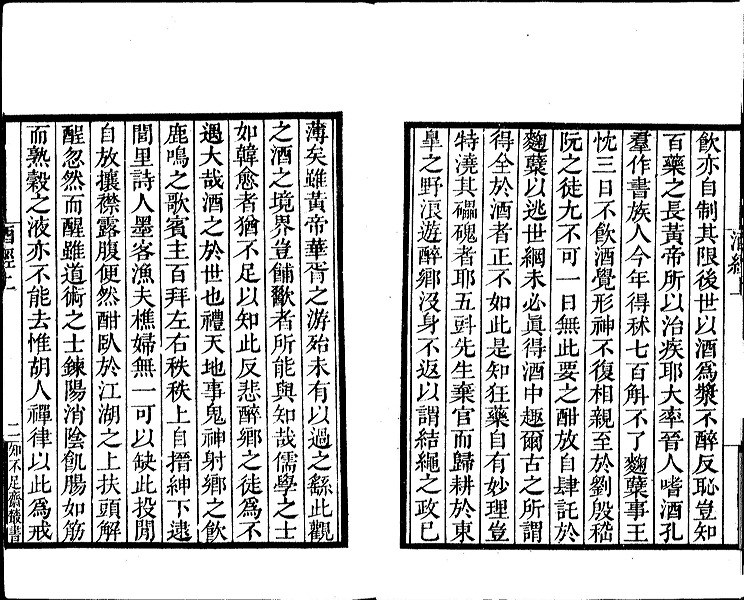 飲亦自制其限後世以酒爲漿不醉反恥豈知
百藥之長黃帝所以治疾耶大率晉人嗜酒孔
羣作書族人今年得秫七百斛不了麴糵事王
忱三日不飲酒覺形神不復相親至於劉殷嵇
阮之徒尤不可一日無此要之酣放自肆託於
麴糵以逃世網未必眞得酒中趣爾古之所謂
得全於酒者正不如此是知狂藥自有妙理豈
特澆其礧磈者耶五斗先生棄官而歸耕於東
臯之野浪遊醉鄉沒身不返以謂結繩之政已
薄矣雖黃帝華胥之游殆未有以過之繇此觀
之酒之境界豈餔歠者所能與知哉儒學之士
如韓愈者猶不足以知此反悲醉鄉之徒爲不
遇大哉酒之於世也禮天地事鬼神射鄉之飲
鹿鳴之歌賓主百拜左右秩秩上自搢紳下逮
閭里詩人墨客漁夫樵婦無一可以缺此投閒
自放攘襟露腹便然酣臥於江湖之上扶頭解
酲忽然而醒雖道術之士鍊陽消陰飢腸如筋
而熟穀之液亦不能去惟胡人禪律以此爲戒
二知不足齋叢書